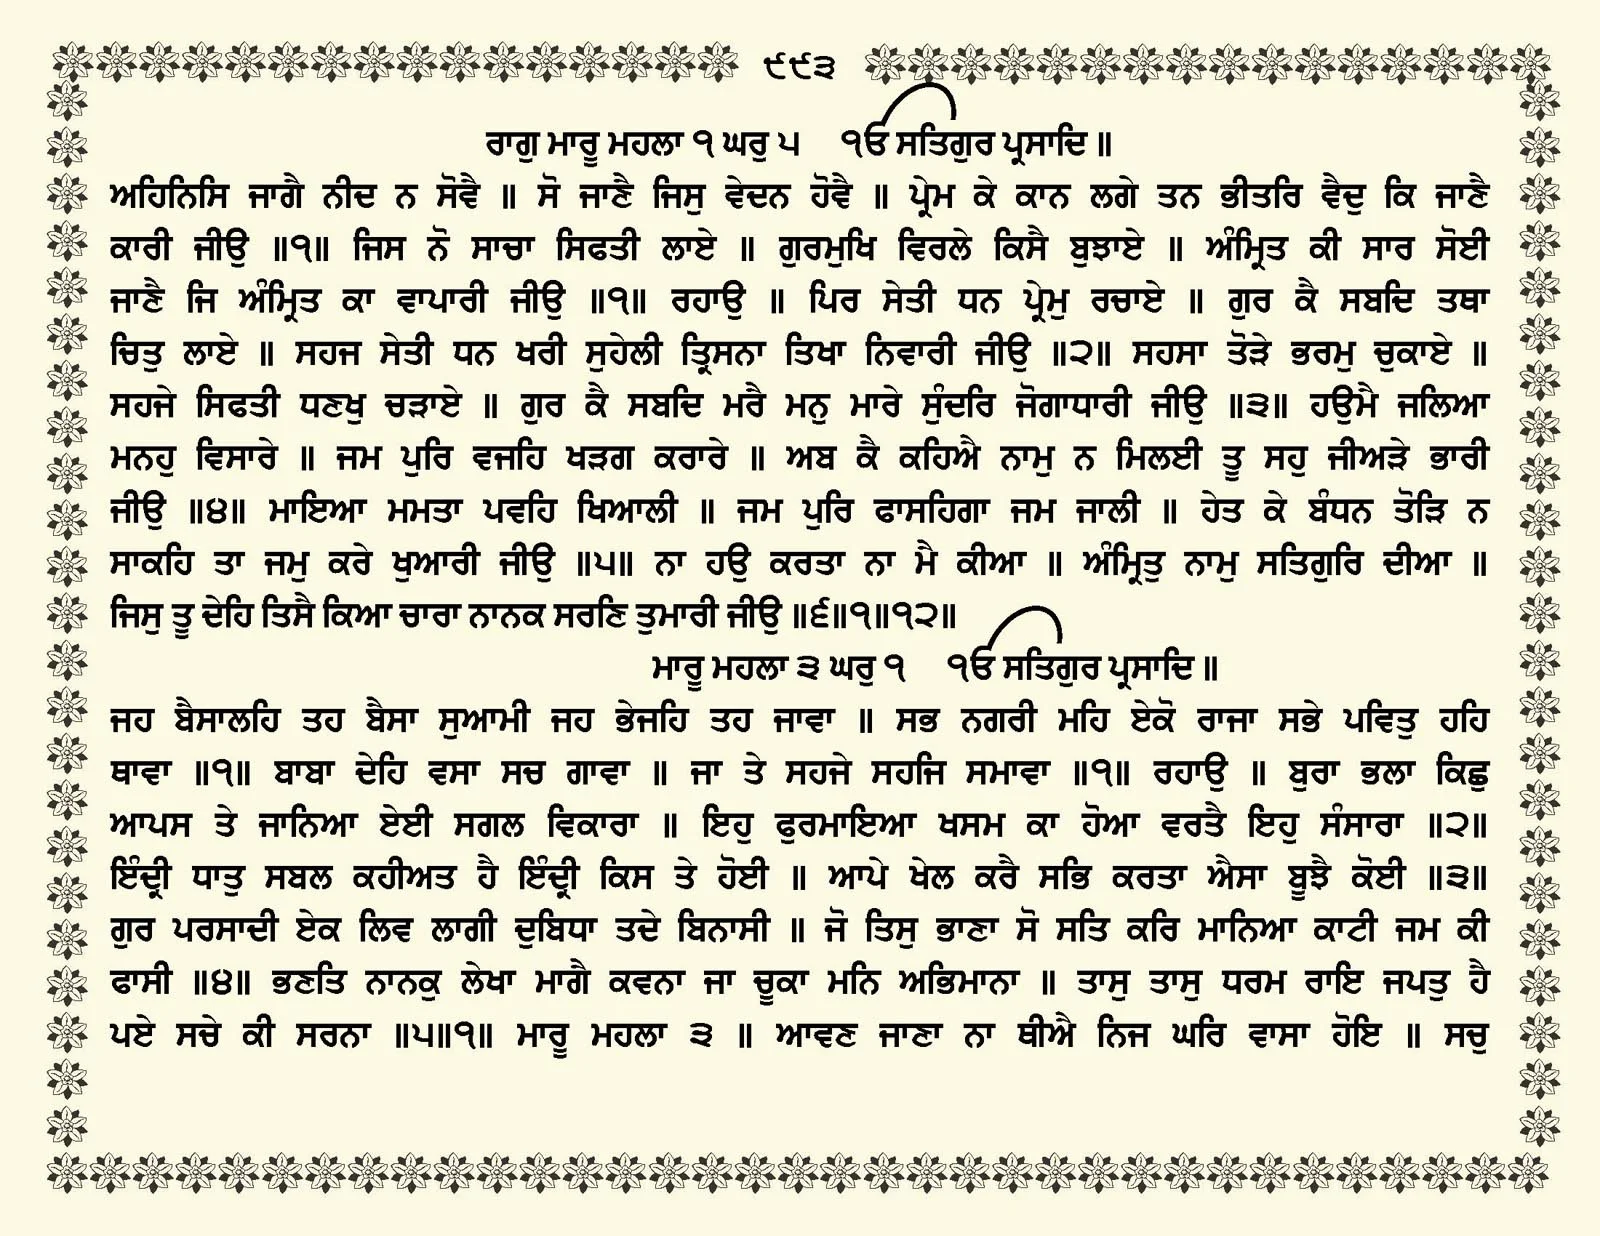 ੯੯੩
ਰਾਗੁ ਮਾਰੂ ਮਹਲਾ ੧ ਘਰੁ ੫ ੴ ਸਤਿਗੁਰ ਪ੍ਰਸਾਦਿ ॥
ਅਹਿਨਿਸਿ ਜਾਗੈ ਨੀਦ ਨ ਸੋਵੈ ॥ ਸੋ ਜਾਣੈ ਜਿਸੁ ਵੇਦਨ ਹੋਵੈ ॥ ਪ੍ਰੇਮ ਕੇ ਕਾਨ ਲਗੇ ਤਨ ਭੀਤਰਿ ਵੈਦੁ ਕਿ ਜਾਣੈ
ਕਾਰੀ ਜੀਉ ॥੧॥ ਜਿਸ ਨੋ ਸਾਚਾ ਸਿਫਤੀ ਲਾਏ ॥ ਗੁਰਮੁਖਿ ਵਿਰਲੇ ਕਿਸੈ ਬੁਝਾਏ ॥ ਅੰਮ੍ਰਿਤ ਕੀ ਸਾਰ ਸੋਈ
ਜਾਣੈ ਜਿ ਅੰਮ੍ਰਿਤ ਕਾ ਵਾਪਾਰੀ ਜੀਉ ॥੧॥ ਰਹਾਉ ॥ ਪਿਰ ਸੇਤੀ ਧਨ ਪ੍ਰੇਮੁ ਰਚਾਏ ॥ ਗੁਰ ਕੈ ਸਬਦਿ ਤਥਾ
ਚਿਤੁ ਲਾਏ ॥ ਸਹਜ ਸੇਤੀ ਧਨ ਖਰੀ ਸੁਹੇਲੀ ਤ੍ਰਿਸਨਾ ਤਿਖਾ ਨਿਵਾਰੀ ਜੀਉ ॥੨॥ ਸਹਸਾ ਤੋੜੇ ਭਰਮੁ ਚੁਕਾਏ ॥
ਸਹਜੇ ਸਿਫਤੀ ਧਣਖੁ ਚੜਾਏ ॥ ਗੁਰ ਕੈ ਸਬਦਿ ਮਰੈ ਮਨੁ ਮਾਰੇ ਸੁੰਦਰਿ ਜੋਗਾਧਾਰੀ ਜੀਉ ॥੩॥ ਹਉਮੈ ਜਲਿਆ
ਮਨਹੁ ਵਿਸਾਰੇ ॥ ਜਮ ਪੁਰਿ ਵਜਹਿ ਖੜਗ ਕਰਾਰੇ ॥ ਅਬ ਕੈ ਕਹਿਐ ਨਾਮੁ ਨ ਮਿਲਈ ਤੂ ਸਹੁ ਜੀਅੜੇ ਭਾਰੀ
ਜੀਉ ॥੪॥ ਮਾਇਆ ਮਮਤਾ ਪਵਹਿ ਖਿਆਲੀ ॥ ਜਮ ਪੁਰਿ ਫਾਸਹਿਗਾ ਜਮ ਜਾਲੀ ॥ ਹੇਤ ਕੇ ਬੰਧਨ ਤੋੜਿ ਨ
ਸਾਕਹਿ ਤਾ ਜਮੁ ਕਰੇ ਖੁਆਰੀ ਜੀਉ ॥੫॥ ਨਾ ਹਉ ਕਰਤਾ ਨਾ ਮੈ ਕੀਆ ॥ ਅੰਮ੍ਰਿਤੁ ਨਾਮੁ ਸਤਿਗੁਰਿ ਦੀਆ ॥
ਜਿਸੁ ਤੂ ਦੇਹਿ ਤਿਸੈ ਕਿਆ ਚਾਰਾ ਨਾਨਕ ਸਰਣਿ ਤੁਮਾਰੀ ਜੀਉ ॥੬॥੧॥੧੨॥
ਮਾਰੂ ਮਹਲਾ ੩ ਘਰੁ ੧ ੴ ਸਤਿਗੁਰ ਪ੍ਰਸਾਦਿ ॥
ਜਹ ਬੈਸਾਲਹਿ ਤਹ ਬੈਸਾ ਸੁਆਮੀ ਜਹ ਭੇਜਹਿ ਤਹ ਜਾਵਾ ॥ ਸਭ ਨਗਰੀ ਮਹਿ ਏਕੋ ਰਾਜਾ ਸਭੇ ਪਵਿਤੁ ਹਹਿ
ਥਾਵਾ ॥੧॥ ਬਾਬਾ ਦੇਹਿ ਵਸਾ ਸਚ ਗਾਵਾ ॥ ਜਾ ਤੇ ਸਹਜੇ ਸਹਜਿ ਸਮਾਵਾ ॥੧॥ ਰਹਾਉ ॥ ਬੁਰਾ ਭਲਾ ਕਿਛੁ
ਆਪਸ ਤੇ ਜਾਨਿਆ ਏਈ ਸਗਲ ਵਿਕਾਰਾ ॥ ਇਹੁ ਫੁਰਮਾਇਆ ਖਸਮ ਕਾ ਹੋਆ ਵਰਤੈ ਇਹੁ ਸੰਸਾਰਾ ॥੨॥
ਇੰਦ੍ਰੀ ਧਾਤੁ ਸਬਲ ਕਹੀਅਤ ਹੈ ਇੰਦ੍ਰੀ ਕਿਸ ਤੇ ਹੋਈ ॥ ਆਪੇ ਖੇਲ ਕਰੈ ਸਭਿ ਕਰਤਾ ਐਸਾ ਬੂਝੈ ਕੋਈ ॥੩॥
ਗੁਰ ਪਰਸਾਦੀ ਏਕ ਲਿਵ ਲਾਗੀ ਦੁਬਿਧਾ ਤਦੇ ਬਿਨਾਸੀ ॥ ਜੋ ਤਿਸੁ ਭਾਣਾ ਸੋ ਸਤਿ ਕਰਿ ਮਾਨਿਆ ਕਾਟੀ ਜਮ ਕੀ
ਫਾਸੀ ॥੪॥ ਭਣਤਿ ਨਾਨਕੁ ਲੇਖਾ ਮਾਗੈ ਕਵਨਾ ਜਾ ਚੂਕਾ ਮਨਿ ਅਭਿਮਾਨਾ ॥ ਤਾਸੁ ਤਾਸੁ ਧਰਮ ਰਾਇ ਜਪਤੁ ਹੈ
ਪਏ ਸਚੇ ਕੀ ਸਰਨਾ ॥੫॥੧॥ ਮਾਰੂ ਮਹਲਾ ੩ ॥ ਆਵਣ ਜਾਣਾ ਨਾ ਥੀਐ ਨਿਜ ਘਰਿ ਵਾਸਾ ਹੋਇ ॥ ਸਚੁ